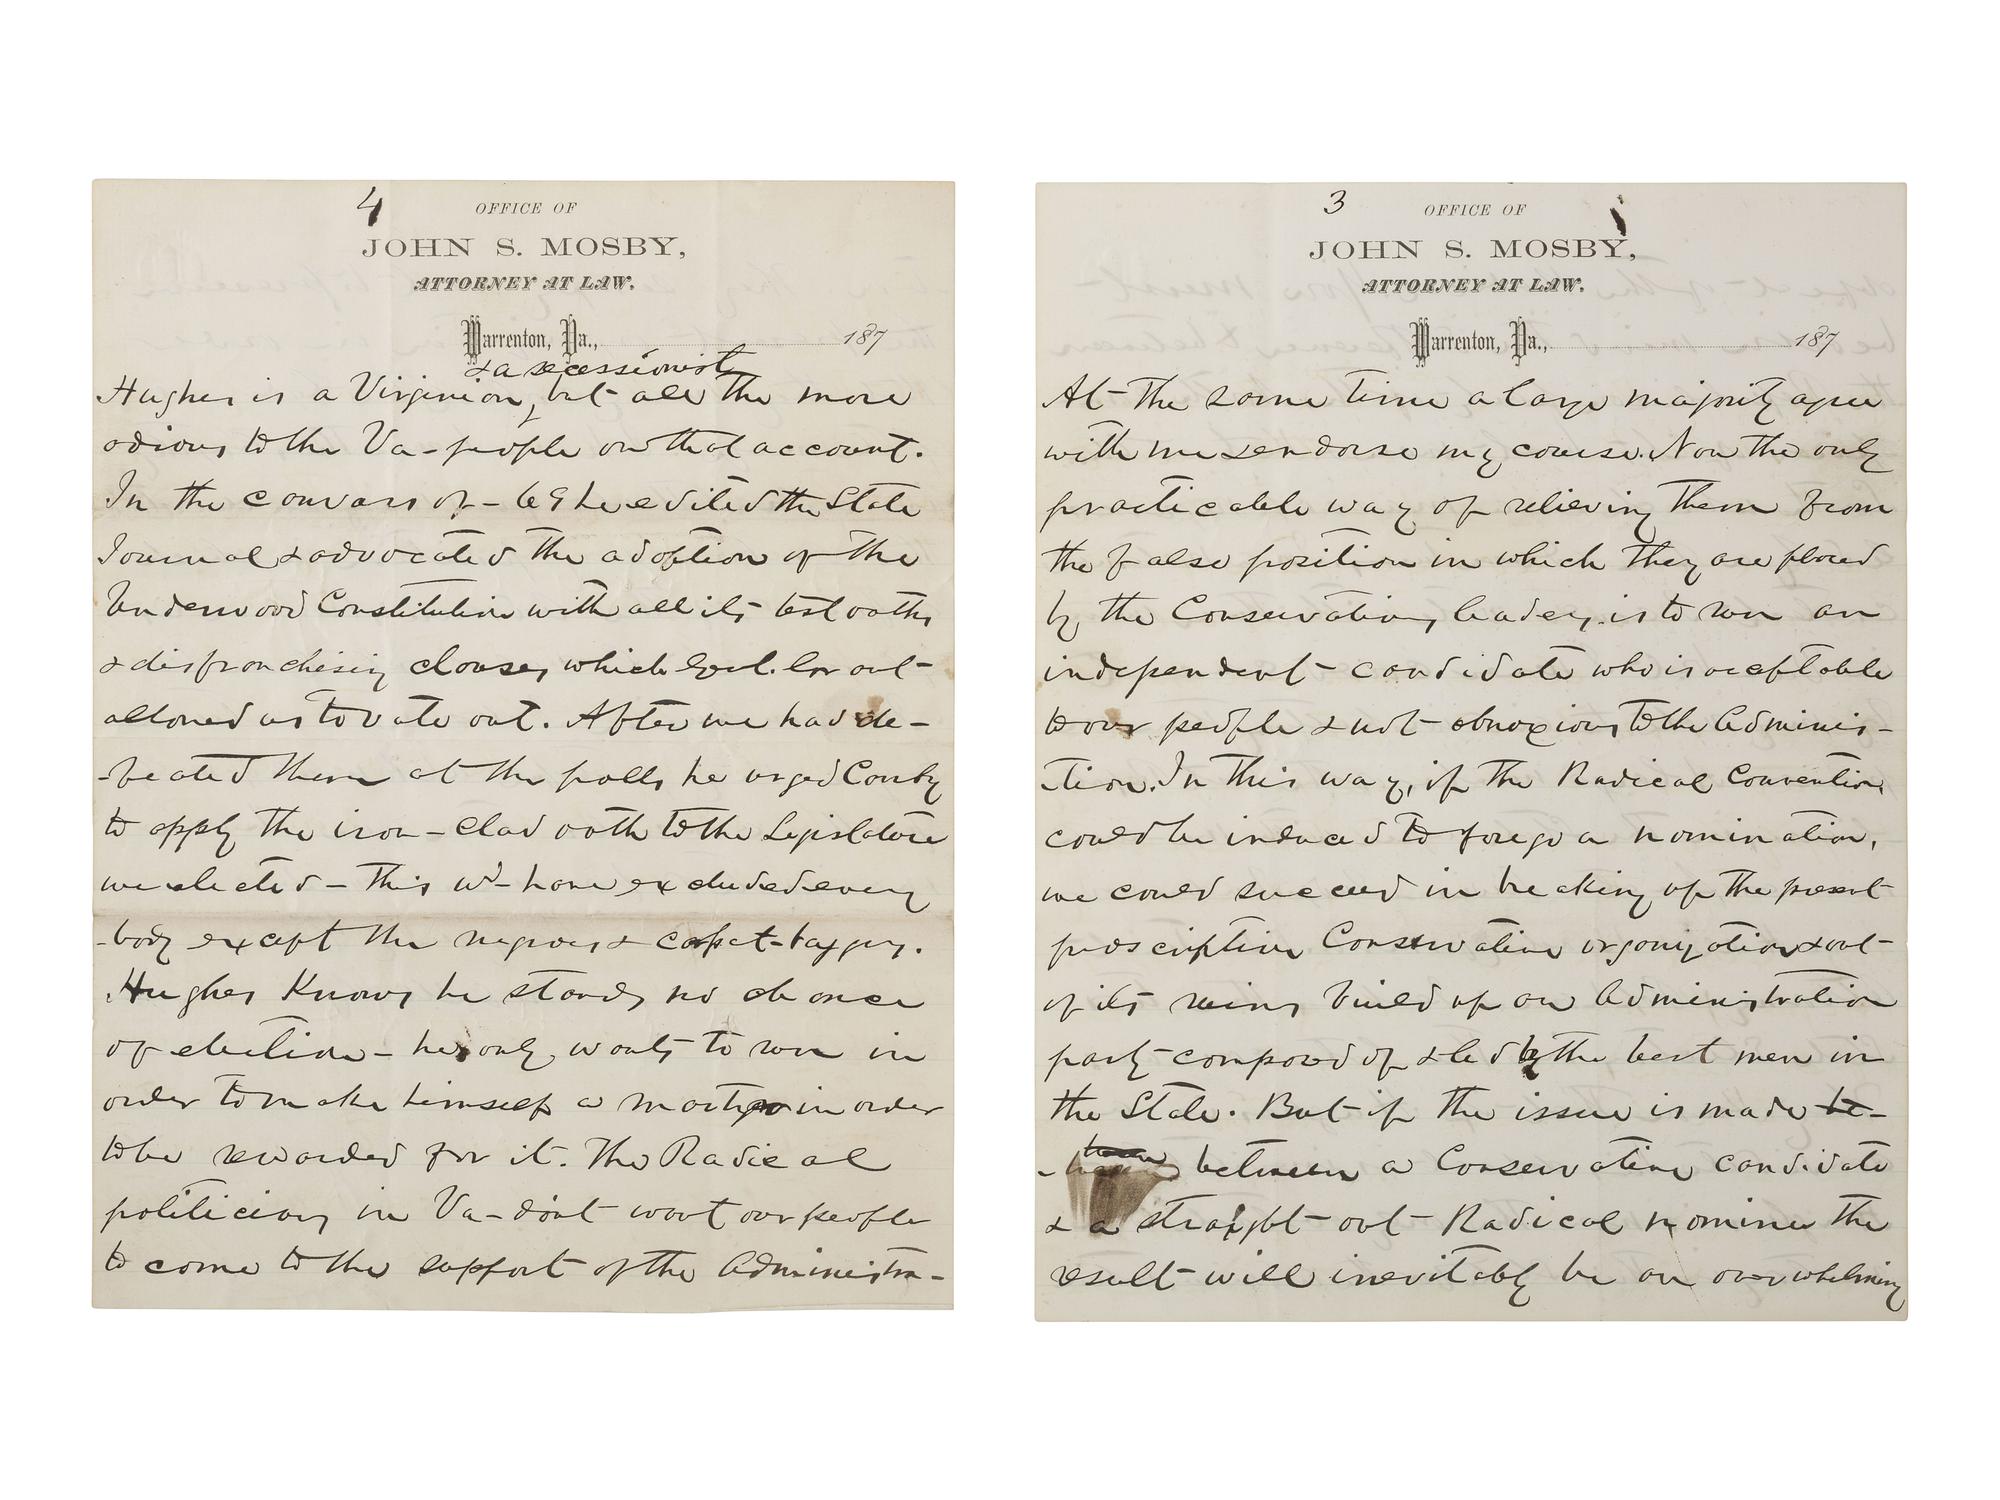 4
OFFICE OF
JOHN S. MOSBY,
ATTORNEY AT LAW.
Warrenton, Va., 187
& a secessionist
Hughes is a Virginian, but all the more
odious to the Va- people on that account.
In the canvass of - 69 he edited the State
Journal & advocated the adoption of the
Underwood Constitution with all its test oaths
& disfranchising clauses, which Genl. Grant
allowed us to vote out. After we had de-
-feated them at the polls he urged Canby
to apply the iron-clad oath to the Legislature
we elected - This wd- have excluded every
-body except the negroes & carpet-baggers.
Hughes Knows he stands no chance
of election - he only wants to run in
order to make himself a martyr in order
to be rewarded for it. The Radical
politicians in Va- don't want our people
to come to the support of the Administra-
3
OFFICE OF
JOHN S. MOSBY,
ATTORNEY AT LAW.
Warrenton, Va., 187
At the same time a large majority agree
with me & endorse my course. Now the only
practicable way of relieving them from
the false position in which they are placed
by the Conservative leaders, is to run an
independent candidate who is acceptable
to our people & not obnoxious to the Adminis-
-tion. In this way, if the Radical Convention
could be induced to forego a nomination,
we could succeed in breaking up the present
proscriptive Conservative organization & out
of its ruins build up an Administration
party composed of & led by the best men in
the State. But if the issue is made be-
between a Conservative candidate
& a straight-out Radical nominee the
result will inevitably be an overwhelming